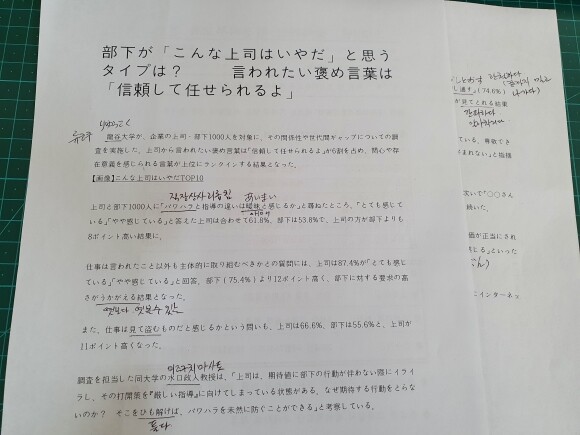 部下が「こんな上司はいやだ」と思う
タイプは？　言われたい褒め言葉は
「信頼して任せられるよ」
りゅうこく
龍谷大学が、企業の上司・部下1000人を対象に、その関係性や世代間ギャップについての調
査を実施した。上司から言われたい褒め言葉は「信頼して任せられるよ」が6割を占め、関心や存
在意義を感じられる言葉が上位にランクインする結果となった。
【画像】こんな上司はいやだTOP10
직장상사괴롭힘 あいまい
上司と部下1000人に「パワハラと指導の違いは曖昧と感じるか」と尋ねたところ、「とても感じて
いる」「やや感じている」と答えた上司は合わせて61.8%、部下は53.8%で、上司の方が部下よりも
8ポイント高い結果に。
仕事は言われたこと以外も主体的に取り組むべきかとの質問には、上司は87.4%が「とても感じ
ている」「やや感じている」と回答。部下（75.4%）より12ポイント高く、部下に対する要求の高
さがうかがえる結果となった。
また、仕事は見て盗むものだと感じるかという問いも、上司は66.6%、部下は55.6%と、上司が
11ポイント高くなった。
미즈구치마사토
調査を担当した同大学の水口政人教授は、「上司は、期待値に部下の行動が伴わない際にイライ
ラし、その打開策を『厳しい指導』に向けてしまっている状態がある。なぜ期待する行動をとらな
いのか？　そこをひも解けば、パワハラを未然に防ぐことができる」と考察している。
(74.6%)
が見てとれる結果
ている、尊敬でき
まれない」と指摘
次いで「○○さん
続いた。
価が正当にされ
にインターネッ